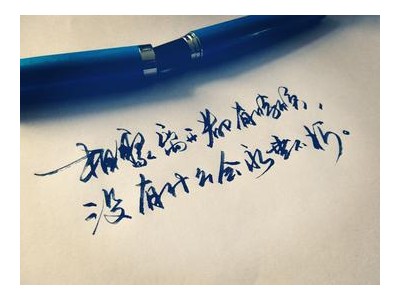 相聚离开都有时候,
没有什么会永垂不朽。